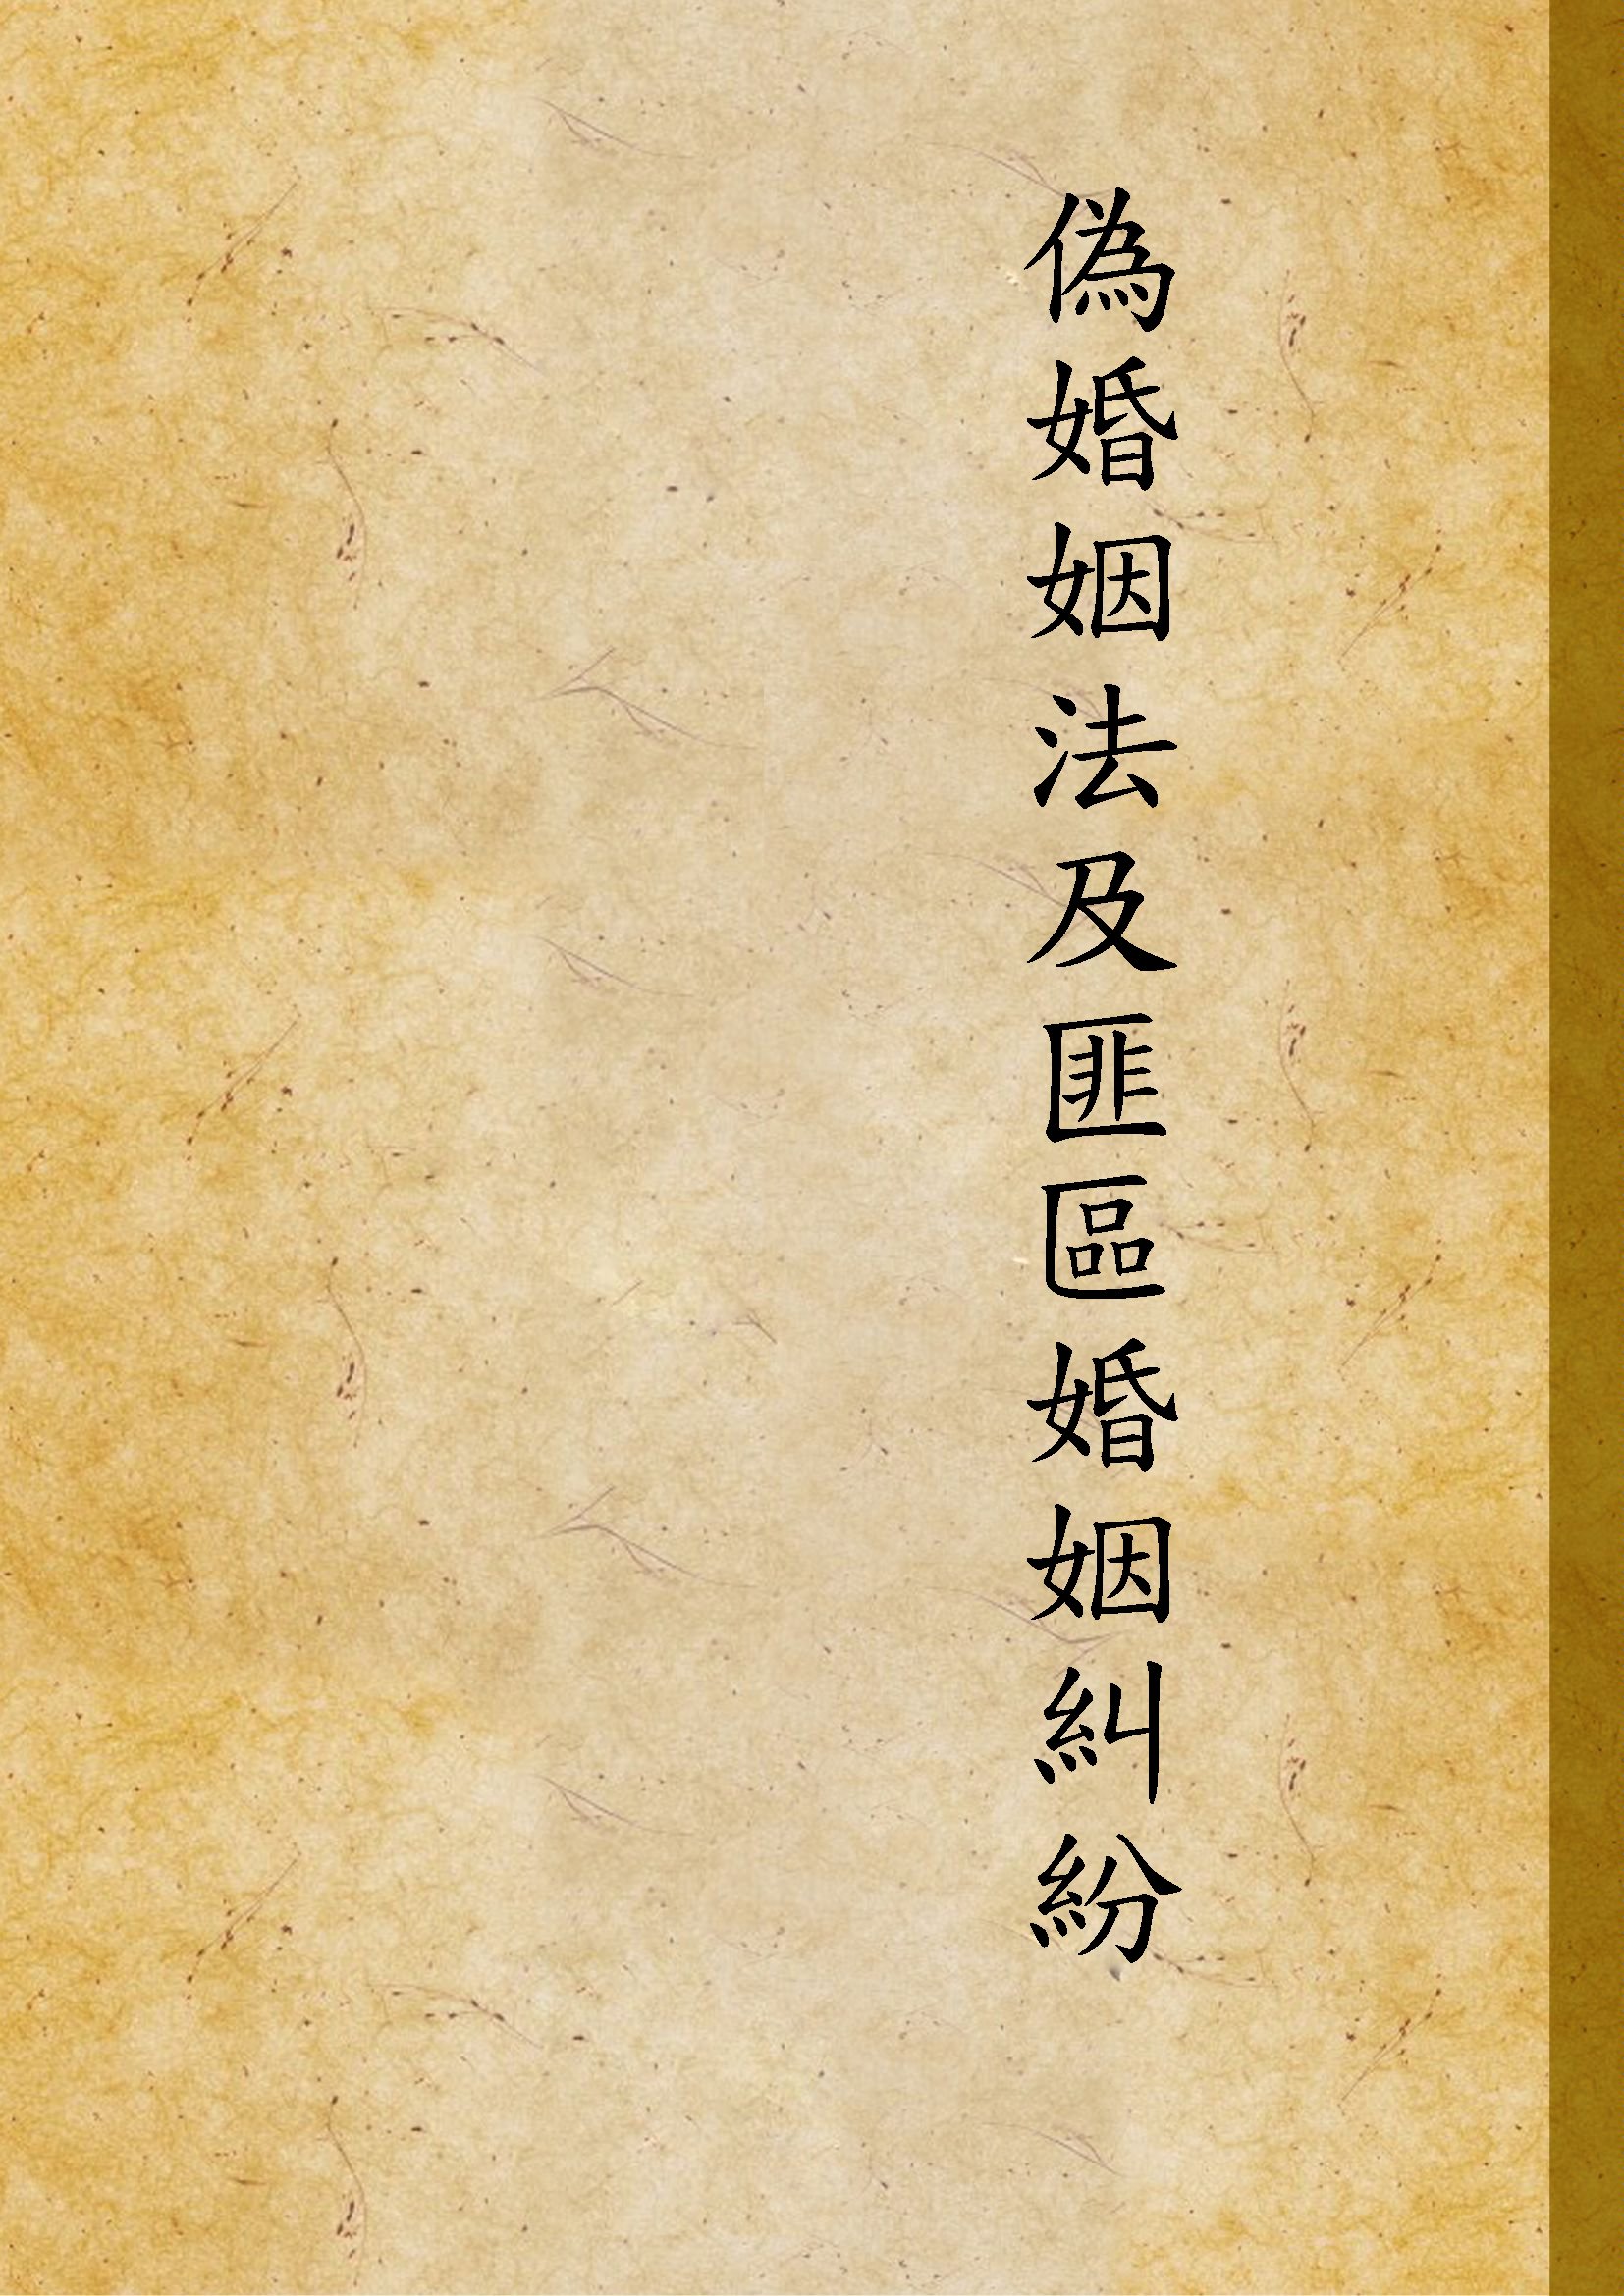 偽婚姻法及匪區婚姻糾紛